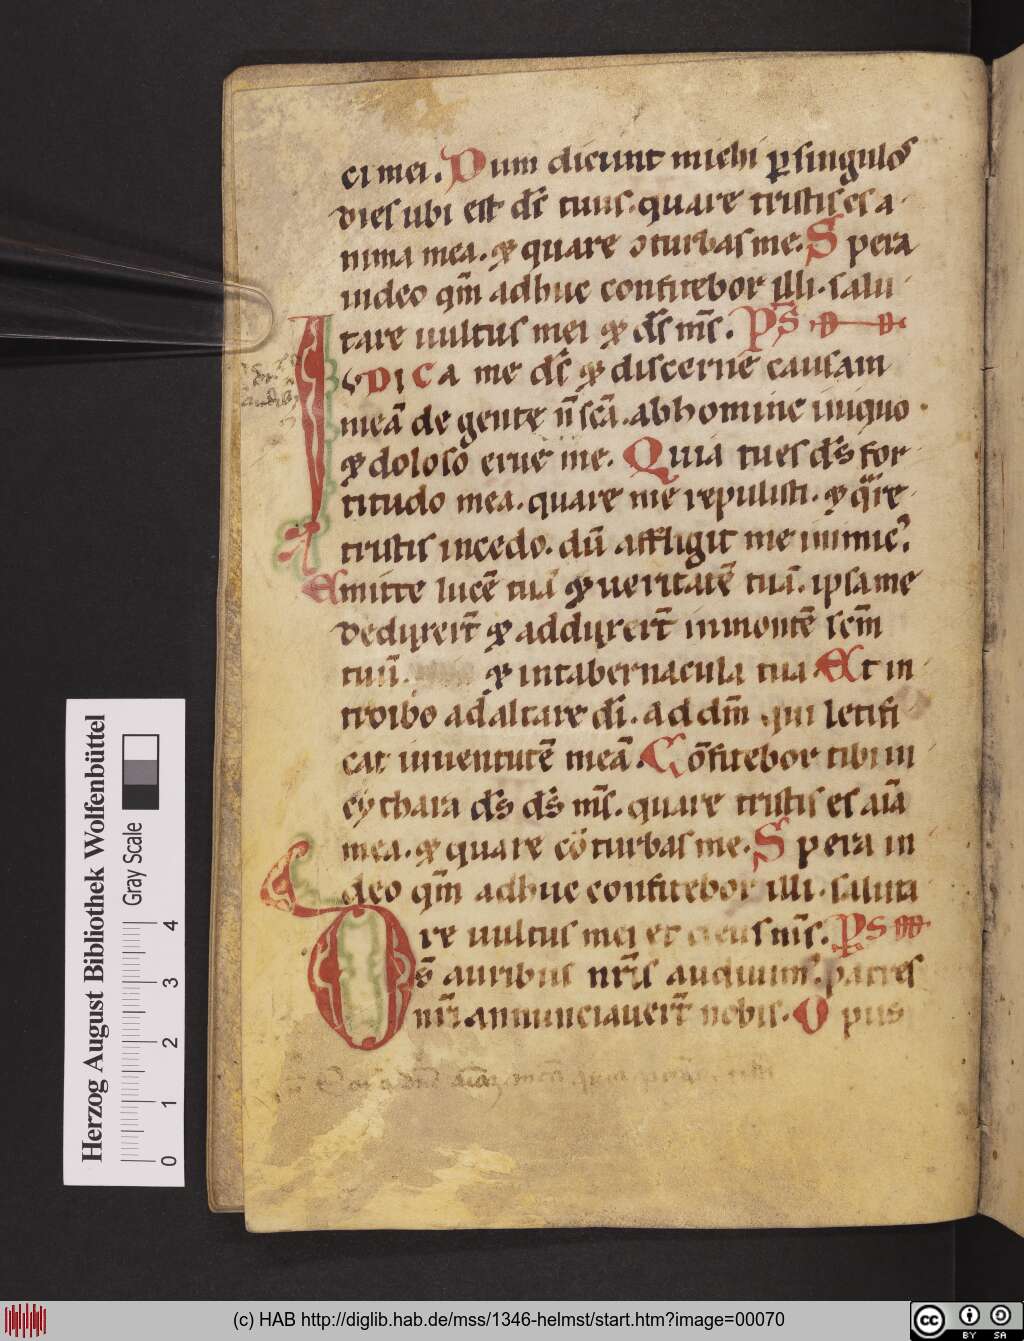 ci mei. Dum dicunt michi ꝑ singulos
dies ubi est ds̄ tuus. quare tristis es a
nima mea. ⁊ quare ɔturbas me. Spera
in deo qm̄ adhuc confitebor illi. salu
tare uultus mei ⁊ ds̄ ms̄. Ps̄
IUDICA me ds̄ ⁊ discerne causam
meā de gente n̄ scā. ab homine iniquo
⁊ doloso erue me. Quia tu es ds̄ for
titudo mea. quare me repulisti. ⁊ qͣre
tristis incedo. dū affligit me inimicꝰ
Emitte lucē tuā ⁊ ueritatē tuā. ipsa me
deduxert̄ ⁊ adduxert̄ in montē scm̄
tuū. ⁊ in tabernacula tua Et in
troibo ad altare di. ad dm̄ qui letifi
cat iuuentutē meā. Cōfitebor tibi in
cythara ds̄ ds̄ ms̄. quare tristis es aīa
mea. ⁊ quare cōturbas me. Spera in
deo qm̄ adhuc confitebor illi. saluta
re uultus mei et deus ms̄. Ps
Ds̄ auribus nr̄is audiuim̄. patres
nr̄i annunciauert̄ nobis. Opus
Herzog August Bibliothek Wolfenbüttel
Gray Scale
0 1 2 3 4
(c) HAB http://diglib.hab.de/mss/1346-helmst/start.htm?image=00070
cc BY SA